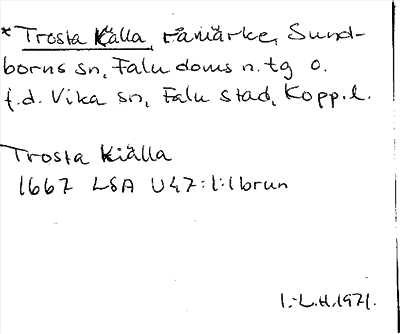 * Trosta Källa, råmärke, Sund-
borns sn, Falu doms n. tg o.
f.d. Vika sn, Falu stad, Kopp. l.
Trosta Kiälla
1667 LSA U47:1:1brun
I.-L.H. 1971.